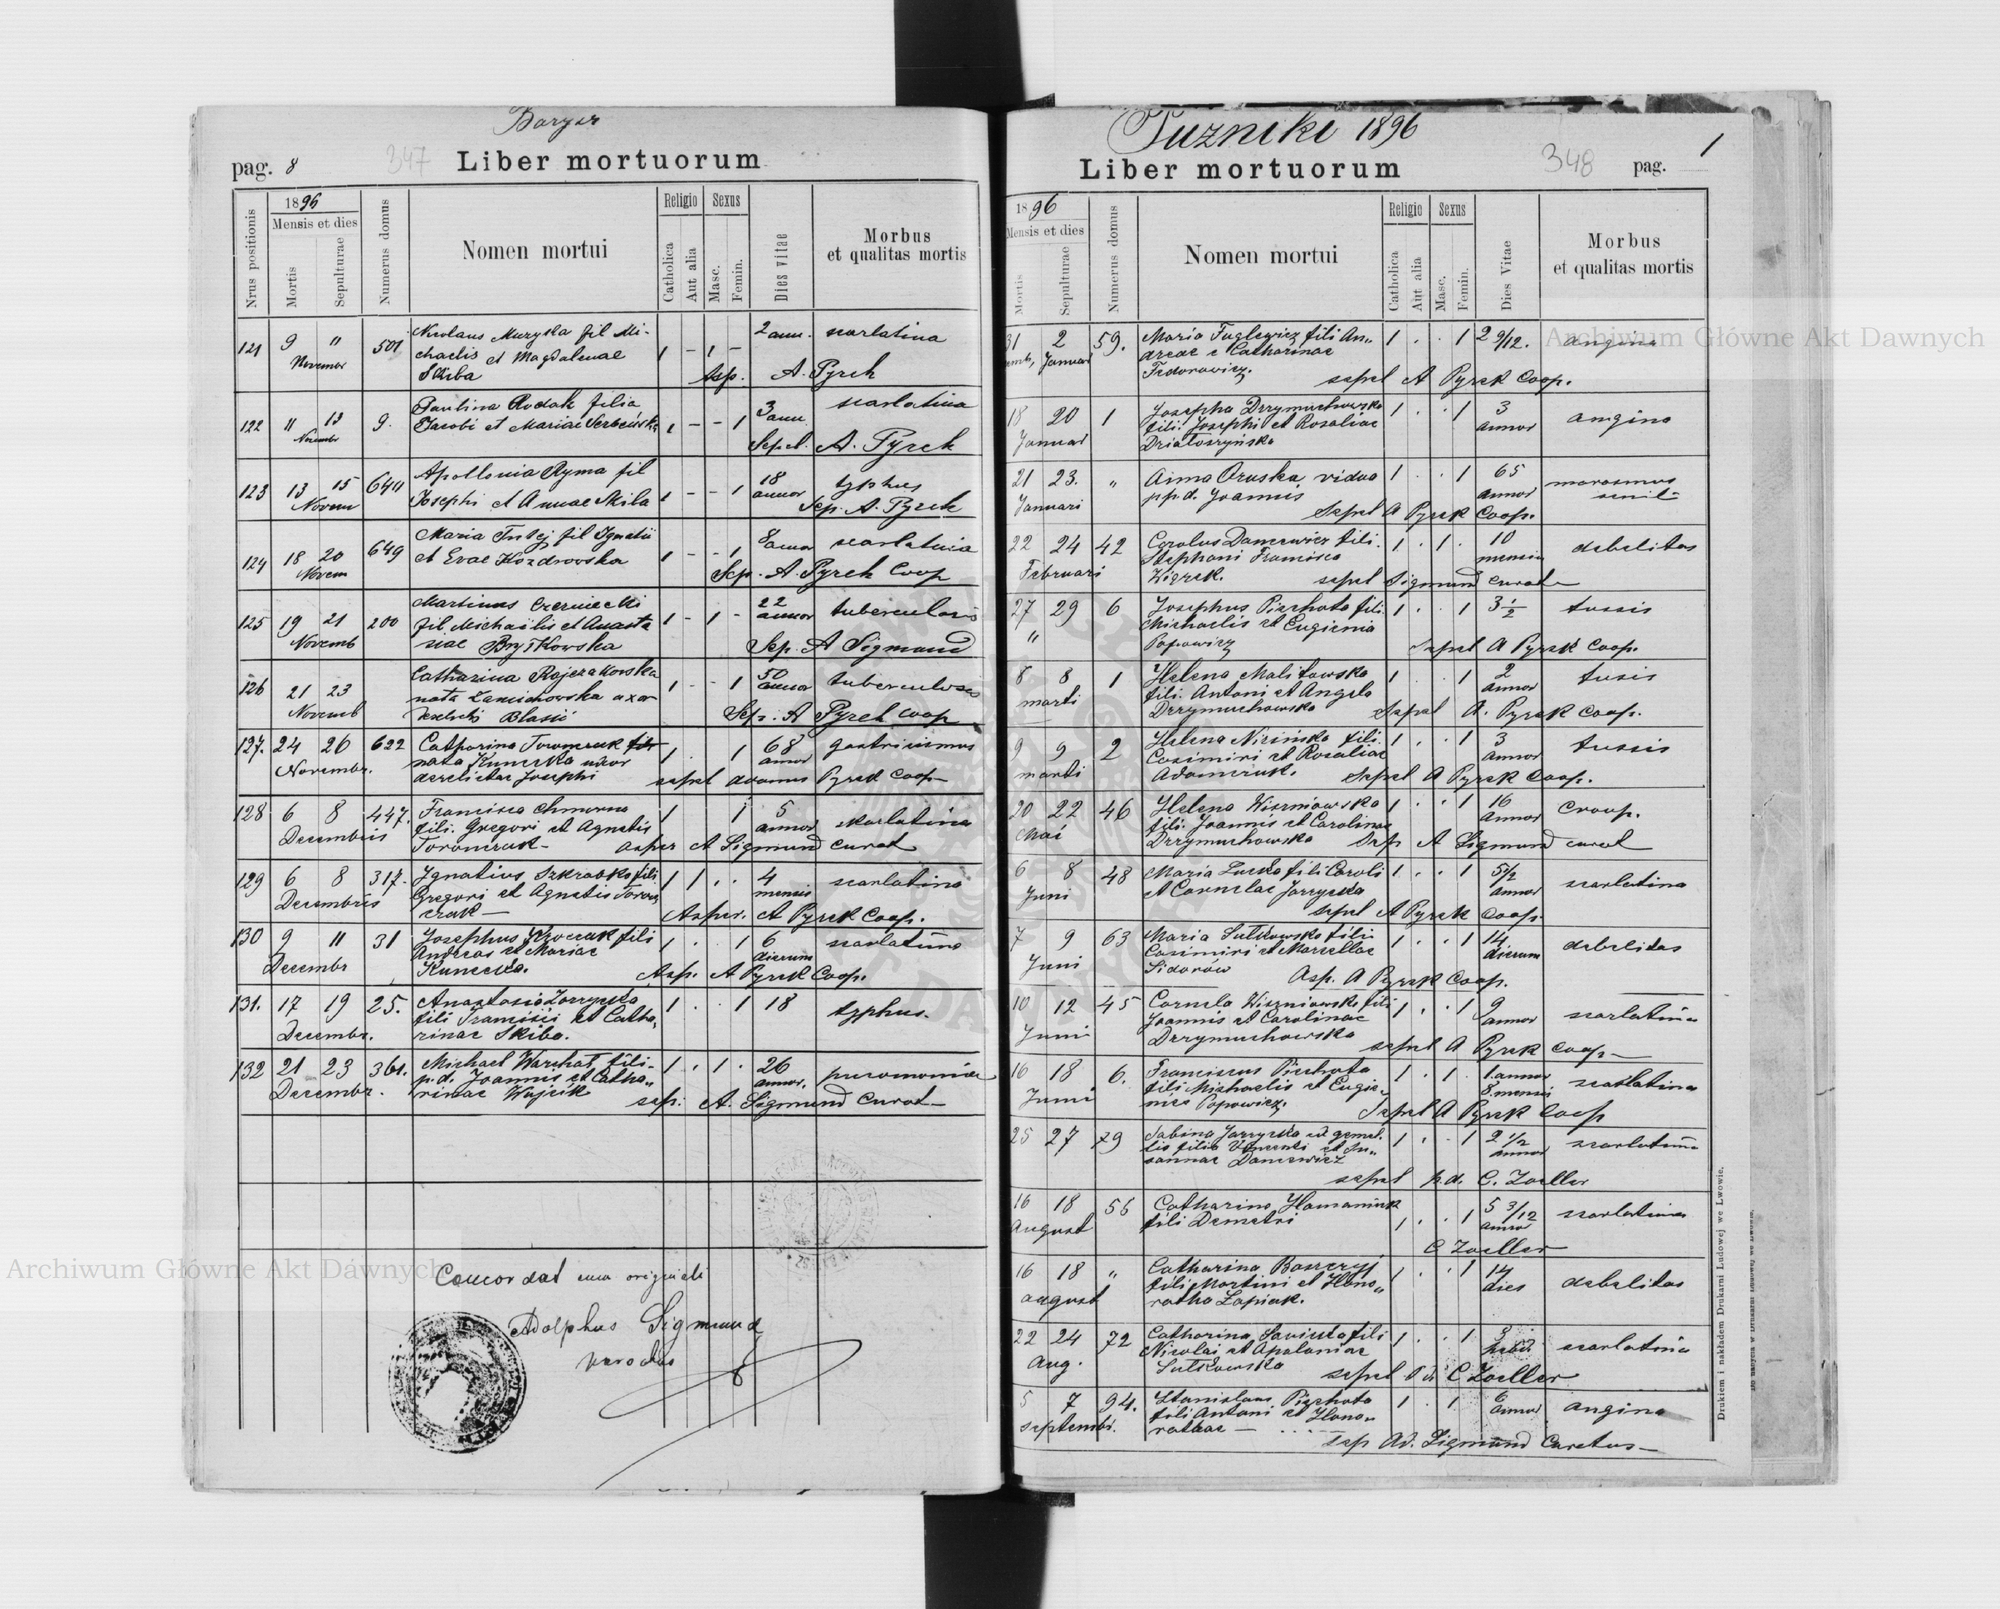 Barysz
pag. 8
347
Liber mortuorum
Nrus positionis
1896
Mensis et dies
Mortis
Sepulturae
Numerus domus
Nomen mortui
Religio
Catholica
Aut alia
Sexus
Masc.
Femin.
Dies vitae
Morbus
et qualitas mortis
121 9 11 501 Nicolaus Muzyka fil Mi- 1 - 1 - 2 ann. scarlatina
Novemor chaelis et Magdalenae
Skiba Asp. A. Pyrek
122 11 13 9. Paulina Rudak filia 1 - - 1 3 ann. scarlatina
Novembr Jacobi et Mariae
Sepel. A. Pyrek
123 13 15 640 Apollonia Ryma fil 1 - - 1 18 annor typhus
Novem Josephi et Annae Skiba Sep. A. Pyrek
124 18 20 649 Maria fil Ignatii 1 - - 1 8 annor scarlatina
Novem et Evae Kozdrowska
Sep. A. Pyrek Coop
125 19 21 200 Martinus Czerniecki 1 - 1 - 22 annor tuberculosis
Novemb fil Michaelis et Anasta
siae Sep. A Sigmund
126 21 23 Catharina 1 - - 1 50 annor tuberculosis
Novemb nata uxor
Blasii Sep. A Pyrek Coop
127. 24 26 622 Catharina 1 . 1 68 annor gastricismus
Novembr. nata Kunecka uxor
derelictae Josephi sepel Adamus Pyrek Coop
128 6 8 447. Francisca 1 1 5 annor skarlatina
Decembris fili. Gregori et Agnetis
asper A Sigmund Curat
129 6 8 317. Ignatius Szkrabko fili 1 1 . . 4 mensis scarlatina
Decembris Gregori et Agnetis Toron
czuk — Asper. A Pyrek Coop.
130 9 11 31 Josephus fili 1 . 1 6 dierum scarlatina
Decembr Andreas et Mariae
Kunecka. Asp. A Pyrek Coop.
131. 17 19 25. Anastasia Zarrycka 1 . 1 18 typhus.
Decembr. fili Francisci et Catha,
rinae Skiba.
132 21 23 361. Michael Warchał fili. 1 . 1 . 26 annor. pneomoniae
Decembr. p.d. Joannis et Catha„
rinae Wójcik sep. A. Sigmund Curat
Concordat cum originali
Adolphus Sigmund
Tuznike 1896
Liber mortuorum
348
pag. 1
1896
Mensis et dies
Mortis
Sepulturae
Numerus domus
Nomen mortui
Religio
Catholica
Aut alia
Sexus
Masc.
Femin.
Dies Vitae
Morbus
et qualitas mortis
31 2 59. Maria Fuglewicz fili An„ 1 . . 1 2 9/12. angina
Januar dreae e Catharinae
Fedorowicz. sepel A Pyrek Coop.
18 20 1 Josepha Drzymuchowska 1 . . 1 3 annor angina
Januar fili. Josephi et Rosaliae
Działoszyńska
21 23. „ Anna Oruska vidua 1 . . 1 65 annor marasmus
Januari p.p.d. Joannis senil
Sepel A Pyrek Coop.
22 24 42 Carolus Dancewicz fili. 1 . 1 . 10 mensiu debelitas
Februari Stephani Francisca
sepel Sigmund Curat
27 29 6 Josephus Piechota fili 1 . . 1 3 1/2 tussis
„ Michaelis et Eugienia
Popowicz Sepel A Pyrek Coop.
8 8 1 Helena Malitowska 1 . 1 2 annor tusis
marti fili. Antoni et Angela
Drzymuchowska Sepel A. Pyrek Coop.
9 9 2 Helena Nizińska fili. 1 . . 1 3 annor tussis
marti Casimiri et Rosaliae
Adamczuk. Sepel A Pyrek Coop.
20 22 46 Helena Wiszniowska 1 . . 1 16 annor Croop.
Mai fili. Joannis et Carolinae
Drzymuchowska Sep A Sigmund curat
6 8 48 Maria fili Caroli 1 . . 1 5 1/2 annor scarlatina
Juni et Cornelae Jarrycka
sepel A Pyrek Coop.
7 9 63 Maria Sutkowska fili 1 . . 1 14 dierum debelitas
Juni Casimiri et Marcellae
Sidorów Asp. A Pyrek Coop.
10 12 45 Cornela Wiszniowska fili 1 . 1 9 annor scarlatina
Juni Joannis et Carolinae
Drzymuchowska sepel A Pyrek Coop
16 18 6. Franciscus Piechota 1 . 1 1. annor 8. mensi scarlatina
Juni fili Michaelis et Eugie„
niae Popowicz. Sepel A Pyrek Coop
25 27 79 Sabina Jarrycka ex gemel. 1 . . 1 2 1/2 annor scarlatina
lis filia Vincenti et Su„
sannae Dancewicz
sepel p.d. C. Zoeller
16 18 56 Catharina Hamaniuk 1 . . 1 5 3/12 annor scarlatina
August fili Demetri
C Zoeller
16 18 „ Catharina 1 . . 1 14 dies debelitas
august fili Martini et Hono„
ratha Łapiak.
22 24 72 Catharina fili 1 . . 1 3 scarlatina
Aug. Nicolai et Apoloniae
Sutkowska sepel P. d. C Zoeller
5 7 94. Stanislaus Piechota 1 . 1 6 annor angina
septembr. fili Antoni et Hono„
rathae — sep Ad. Sigmund Curatus
Drukiem i nakładem Drukarni Ludowej we Lwowie.
Archiwum Główne Akt Dawnych
Archiwum Główne Akt Dawnych